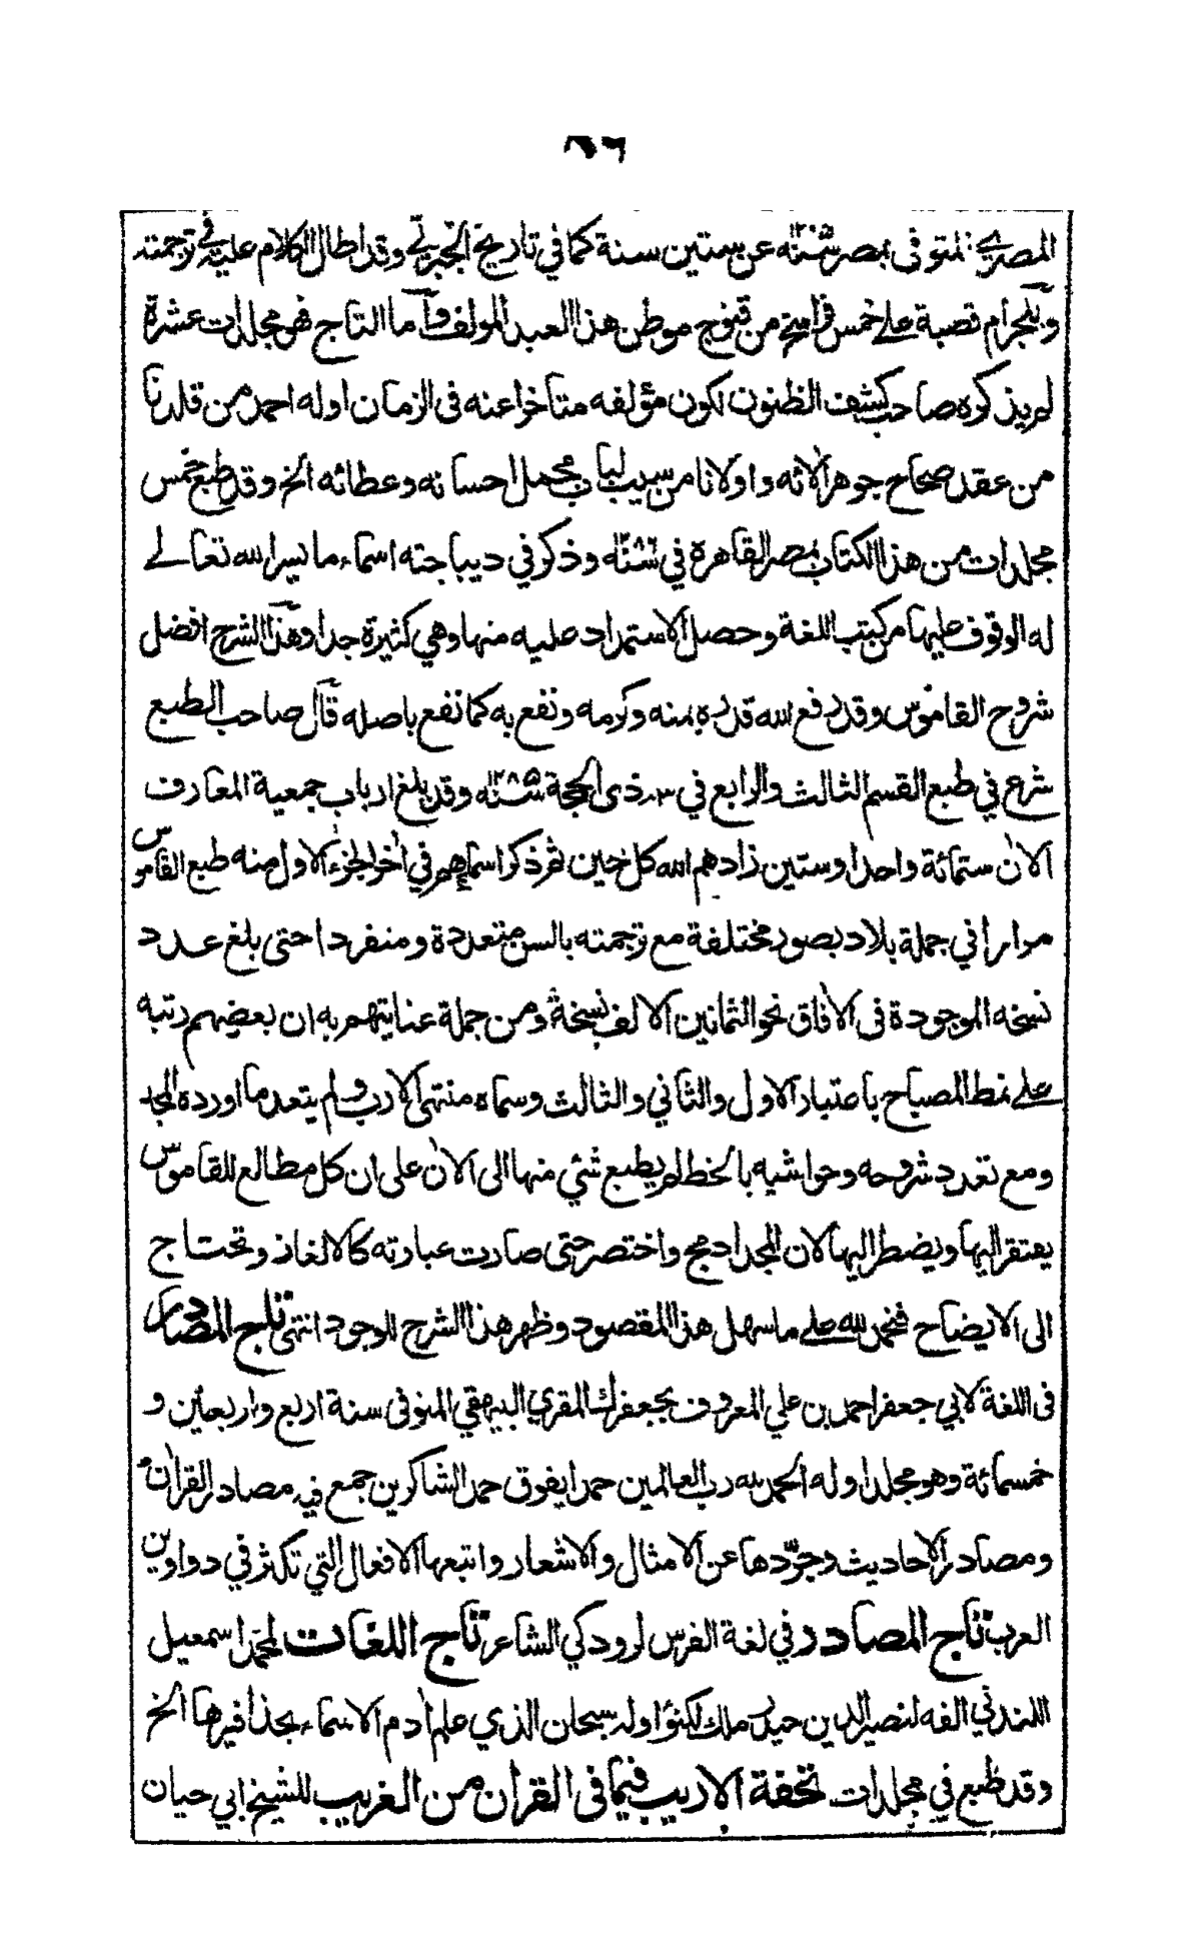 المصري المتوفى بمصر سنة عن ستين سنة كما في تاريخ الجبرتي وقد اطال الكلام عليه في ترجمته
وبلجرام قصبة على خمس فراسخ من قنوج موطن هذا العبد المؤلف وآما التاج فهو مجلدات عشرة
لم يذكره صاحب كشف الظنون لكون مؤلفه متأخرا عنه فى الزمان اوله احمد من قلدنا
من عقد صحاح جوهر الائه واولانا من سيب لباب مجمل احسانه وعطائه الخ وقد طبع خمس
مجلدات من هذا الكتاب بمصر القاهرة في سنة وذكر في ديباجته اسماء ما يسر الله تعالے
له الوقوف عليها من كتب اللغة وحصل الاستمداد عليه منها وهي كثيرة جدا وهذا الشرح افضل
شروح القاموس وقد رفع الله قدره بمنه وكرمه ونفع به كما نفع باصله قال صاحب الطبع
شرع في طبع القسم الثالث والرابع في ذى الحجة سنة ١٢٨٥ وقد بلغ ارباب جمعية المعارف
الان ستمائة واحدا وستين زادهم الله كل حين ثم ذكر اسمائهم في اخر الجزء الاول منه طبع القاموس
مرارا في جملة بلاد بصور مختلفة مع ترجمته بالسن متعددة ومنفردا حتى بلغ عدد
نسخه الموجودة فى الافاق نحو الثمانين الالف نسخة ومن جملة عنايتهم به ان بعضهم رتبه
على نمط المصباح باعتبار الاول والثاني والثالث وسماه منتهى الارب ولم يتعد ما اورده المجد
ومع تعدد شروحه وحواشيه بالخط لم يطبع شئي منها الى الان على ان كل مطالع للقاموس
يفتقر اليها ويضطر اليها لان المجد ادمج واختصر حتى صارت عبارته كالالغاز وتحتاج
الى الايضاح فنحمد لله على ما سهل هذا المقصود وظهر هذا الشرح للوجود انتهى تاج المصادر
فى اللغة لابي جعفر احمد بن علي المعروف بجعفرك المقري البيهقي المتوفى سنة اربع واربعين و
خمسمائة وهو مجلد اوله الحمد لله رب العالمين حمدا يفوق حمد الشاكرين جمع فيه مصادر القران
ومصادر الاحاديث وجرّدها عن الامثال والاشعار واتبعها الافعال التي تكثر في دواوين
العرب تاج المصادر في لغة الفرس لرودكي الشاعر تاج اللغات لمحمد اسمعيل
اللندني الفه لنصير الدين حيدر ملك لكنؤ اوله سبحان الذي علم ادم الاسماء بحذافيرها الخ
وقد طبع في مجلدات تحفة الاريب فيما فى القران من الغريب للشيخ ابي حيان